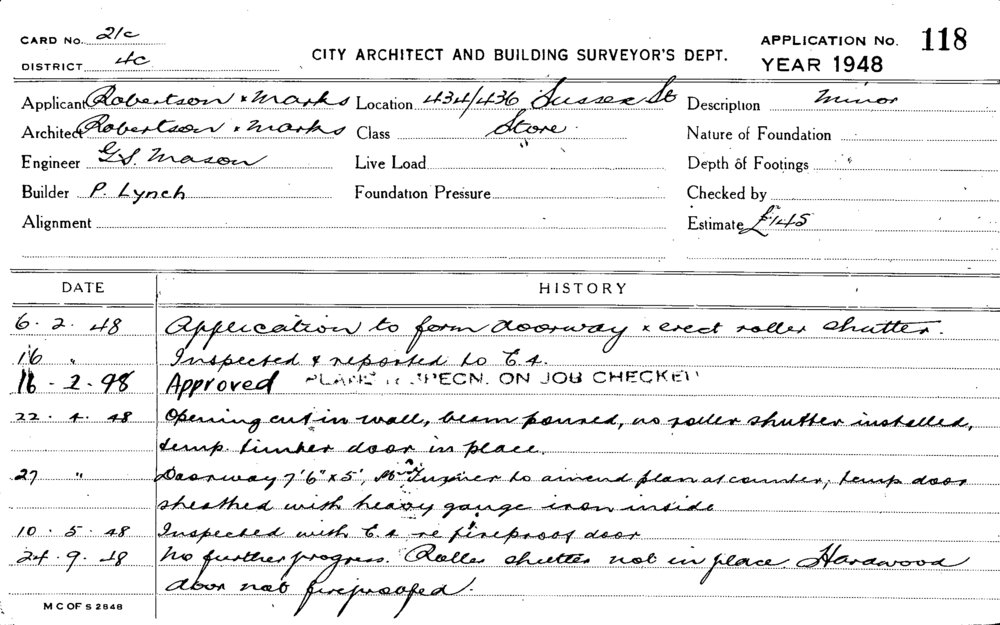 CARD No. 21c
DISTRICT 4c
CITY ARCHITECT AND BUILDING SURVEYOR'S DEPT.
APPLICATION No. 118
YEAR 1948
Applicant Robertson & Marks Location 434/436 Sussex St Description Minor
Architect Robertson & Marks Class Store Nature of Foundation
Engineer G.S. Mason Live Load Depth of Footings
Builder P. Lynch Foundation Pressure Checked by
Alignment Estimate £145
DATE HISTORY
6.2.48 Application to form doorway & erect roller shutter.
16 " Inspected & reported to
16-2-98 Approved PLANS & SPECN. ON JOB CHECKED
22.4.48 Opening cut in wall, beam poured, no roller shutter installed,
temp. timber door in place.
27 " Doorway 7'6" x 5', Mr to amend plan at counter, temp door
sheathed with heavy gauge iron inside
10.5.48 Inspected with re fireproof door
24.9.48 No further progress. Roller shutter not in place. Hardwood
door not fireproofed.
M C OF S 2848